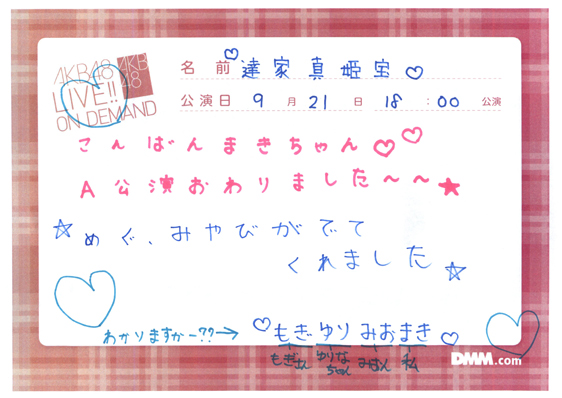 AKB48
LIVE!!
ON DEMAND
AKB
48
名前 ♡達家真姫宝♡
公演日 9月21日 18:00公演
こんばんまきちゃん♡♡
A公演おわりました〜〜★
☆めぐ、みやびがでて
くれました☆
わかりますかー??→ ♡もぎゆりみおまき♡
もぎさん ゆりなちゃん みおん 私
DMM.com